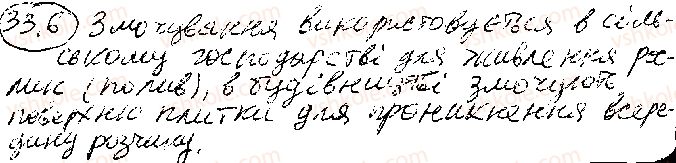 33.6 Змочування використовується в сіль-
ському господарстві для живлення рос-
лин (полив), в будівництві змочують
поверхню плитки для проникнення всере-
дину розчину.